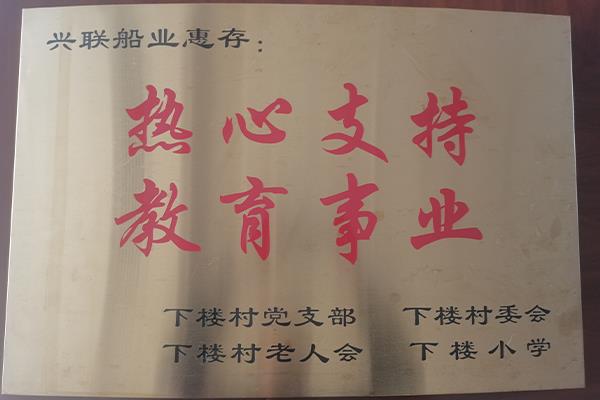 兴联船业惠存：
热心支持
教育事业
下楼村党支部 下楼村委会
下楼村老人会 下楼小学